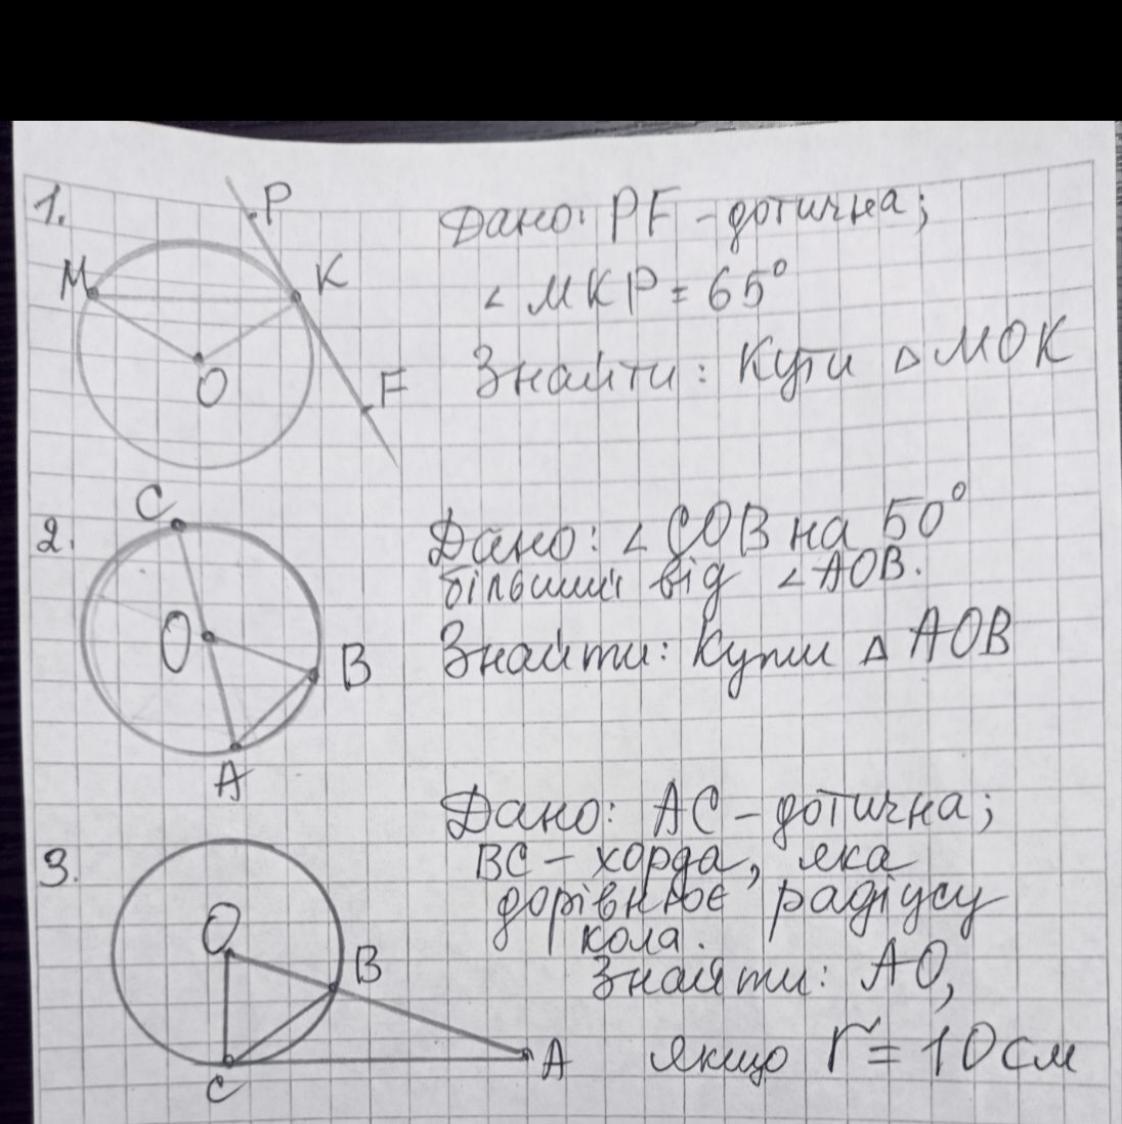 1.
P
M
K
O
F
Дано: PF - дотична;
∠ MKP = 65°
Знайти: Кути △ MOK
2.
C
O
B
A
Дано: ∠ COB на 50°
більший від ∠AOB.
Знайти: Кути △ AOB
3.
O
B
C
A
Дано: AC - дотична;
BC - хорда, яка
дорівнює радіусу
кола.
Знайти: AO,
якщо r = 10 см